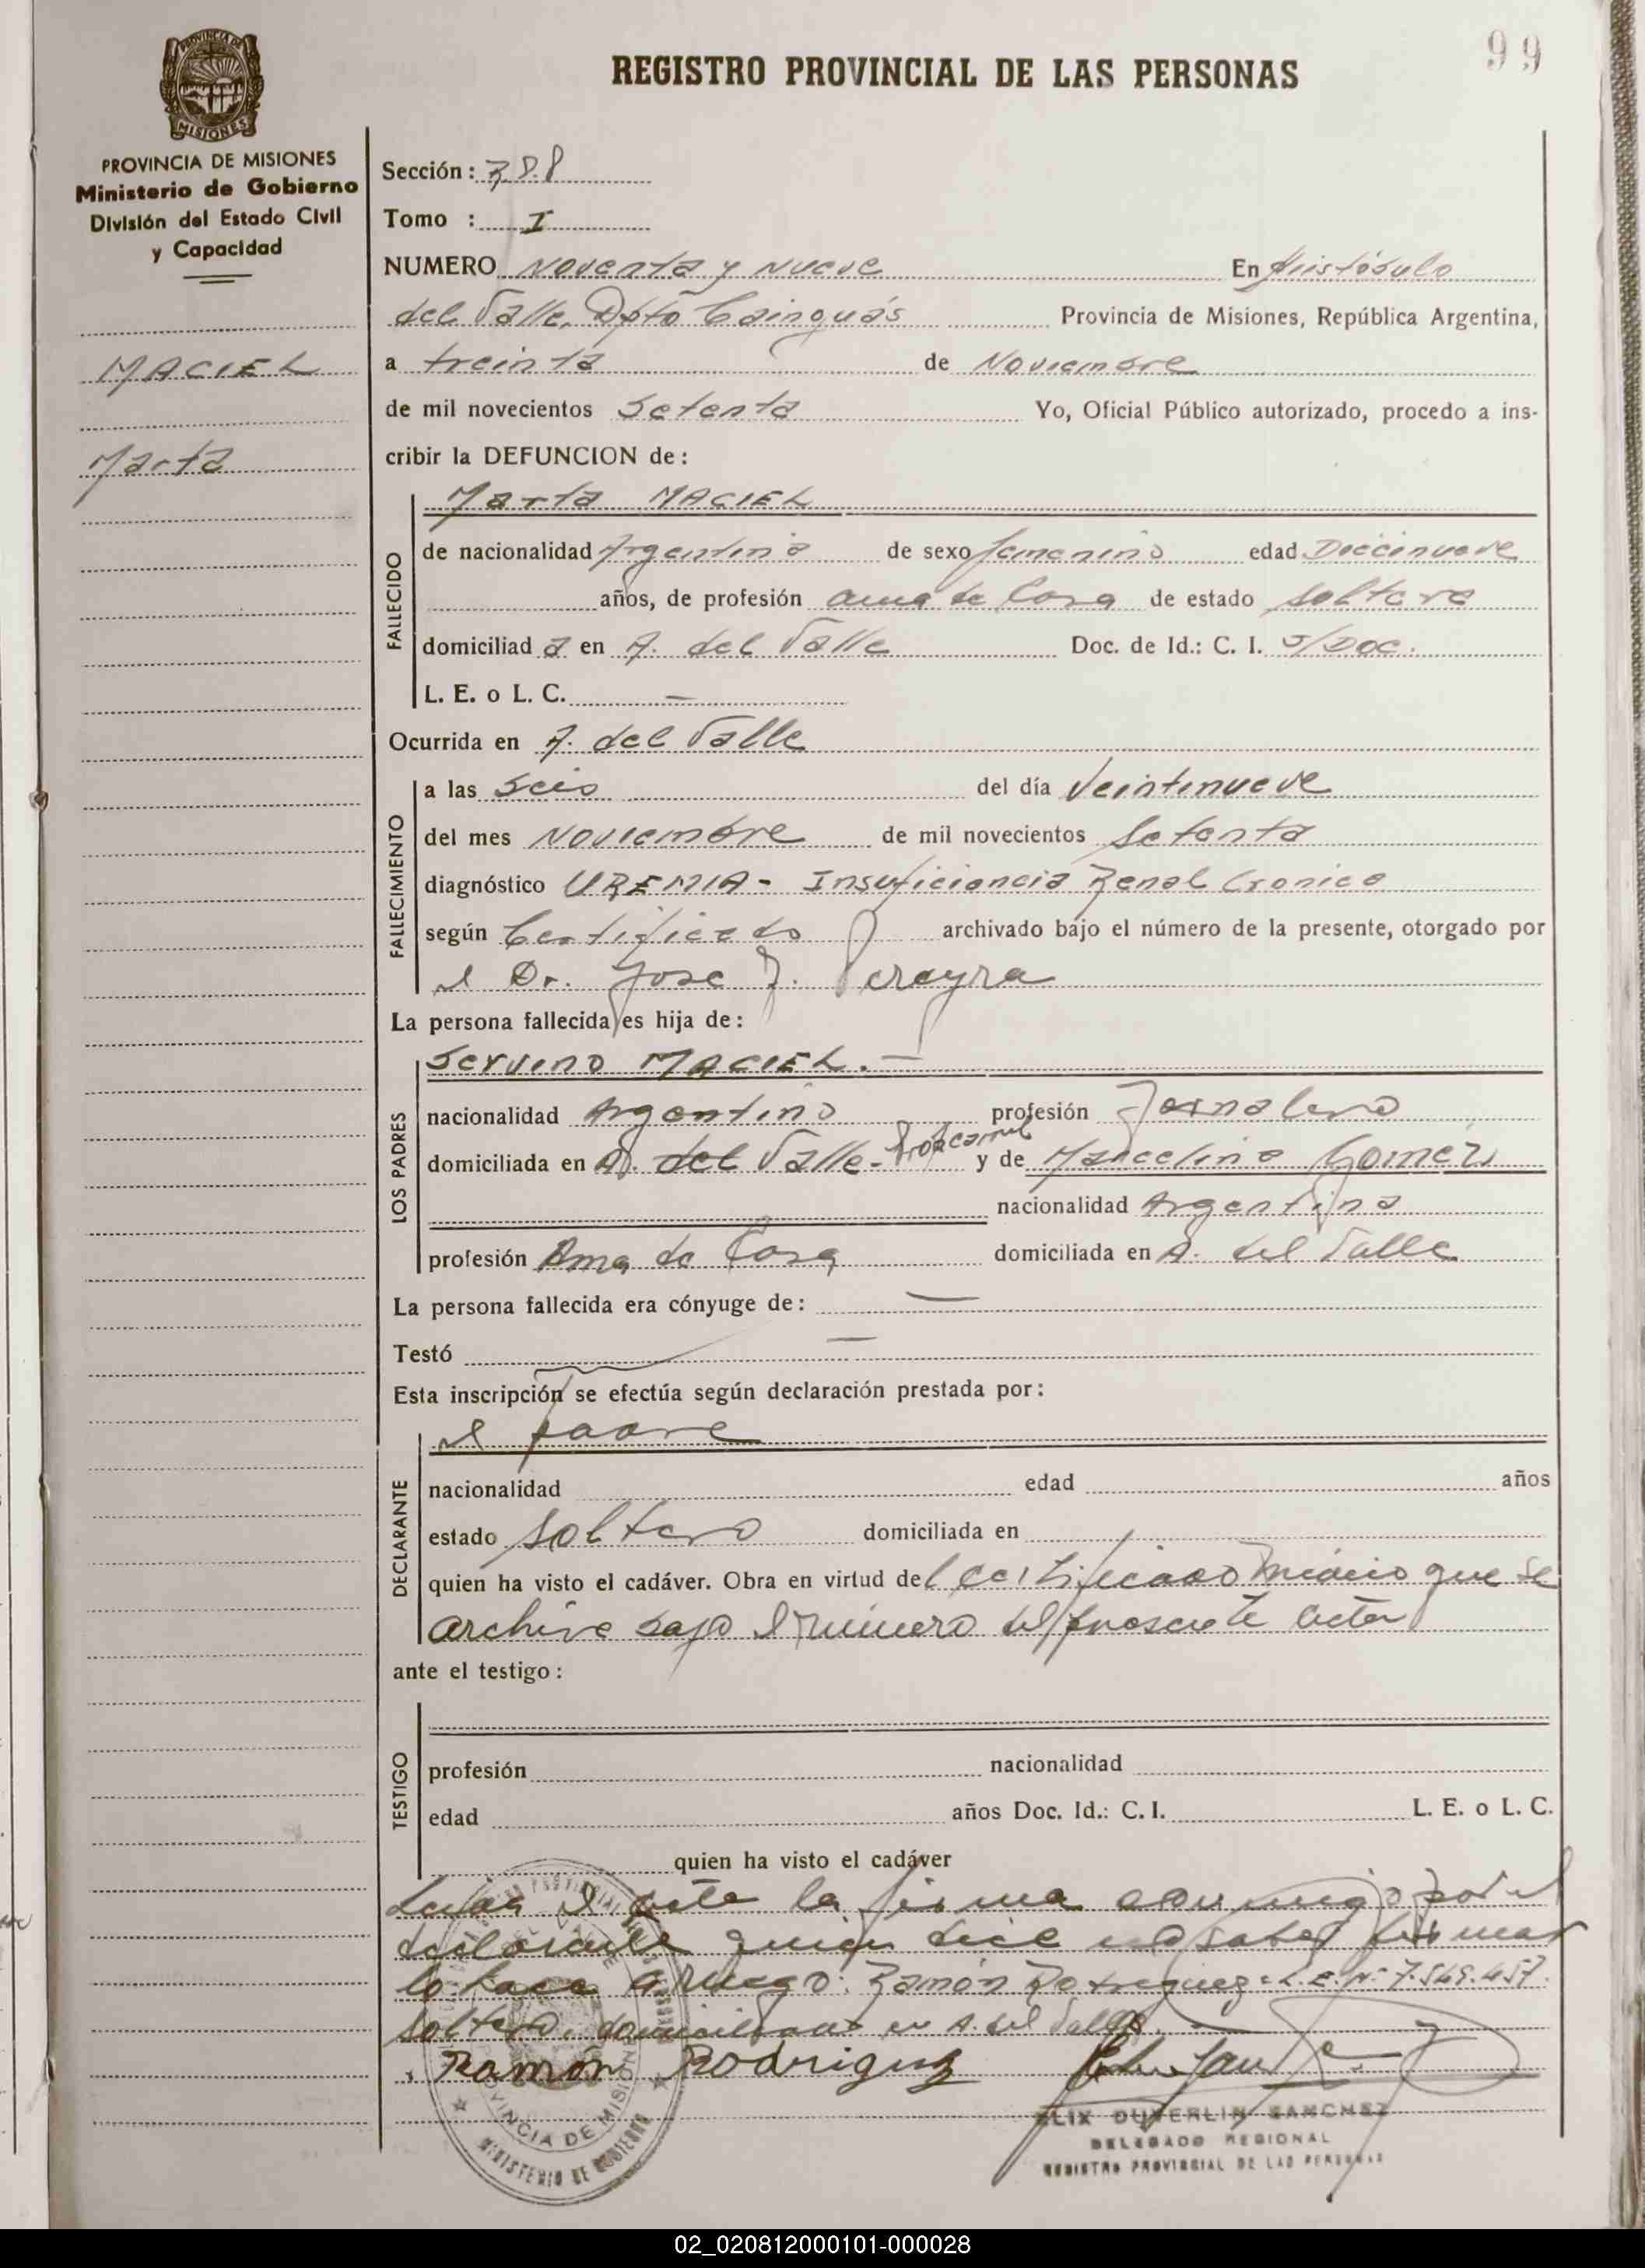 99
REGISTRO PROVINCIAL DE LAS PERSONAS
PROVINCIA DE
MISIONES
PROVINCIA DE MISIONES
Ministerio de Gobierno
División del Estado Civil
y Capacidad
MACIEL
Marta
Sección: R.P.P
Tomo : I
NUMERO Noventa y Nueve En Aristóbulo
del Valle, Dpto Cainguás Provincia de Misiones, República Argentina,
a treinta de Noviembre
de mil novecientos Setenta Yo, Oficial Público autorizado, procedo a ins-
cribir la DEFUNCION de:
Marta MACIEL
FALLECIDO
de nacionalidad Argentina de sexo femenino edad Diecinueve
años, de profesión ama de Casa de estado soltera
domiciliad a en A. del Valle Doc. de Id.: C. I. S/DOC.
L. E. o L. C. —
Ocurrida en A. del Valle
FALLECIMIENTO
a las Seis del día Veintinueve
del mes Noviembre de mil novecientos Setenta
diagnóstico UREMIA - Insuficiencia Renal Cronica
según Certificado archivado bajo el número de la presente, otorgado por
el Dr. Jose J. Pereyra
La persona fallecida es hija de:
Servino MACIEL. —
LOS PADRES
nacionalidad Argentino profesión Jornalero
domiciliada en A. del Valle - y de Marcelina Gomez
nacionalidad Argentina
profesión Ama de Casa domiciliada en A. del Valle
La persona fallecida era cónyuge de: —
Testó —
Esta inscripción se efectúa según declaración prestada por:
el padre
DECLARANTE
nacionalidad edad años
estado soltero domiciliada en
quien ha visto el cadáver. Obra en virtud del certificado médico que se
archiva bajo el número del presente acta
ante el testigo:
TESTIGO
profesión nacionalidad
edad años Doc. Id.: C. I. L. E. o L. C.
quien ha visto el cadáver
Leída el acta la firma conmigo por el
declarante quien dice no saber firmar
lo hace a ruego: Ramón Rodriguez L.E. Nº 7.549.457.
soltero, domiciliado en A. del Valle.
Ramón Rodriguez
PROVINCIA DE MISIONES
MINISTERIO DE GOBIERNO
SANCHEZ
DELEGADO REGIONAL
REGISTRO PROVINCIAL DE LAS PERSONAS
02_020812000101-000028